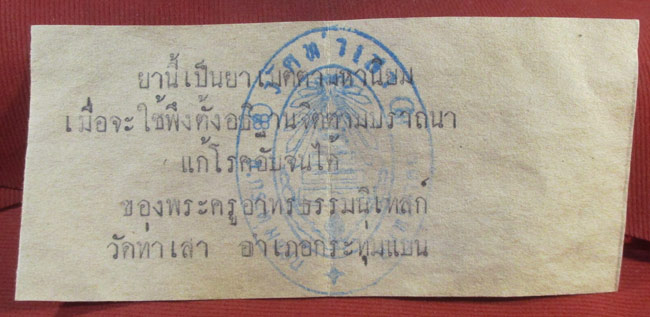 ยานี้เป็นยาเมตตามหานิยม
เมื่อจะใช้พึงตั้งอธิฐานจิตตามปรารถนา
แก้โรคอับจนได้
ของพระครูอาทรธรรมนิเทสก์
วัดท่าเสา อำเภอกระทุ่มแบน
วัดท่าเสา